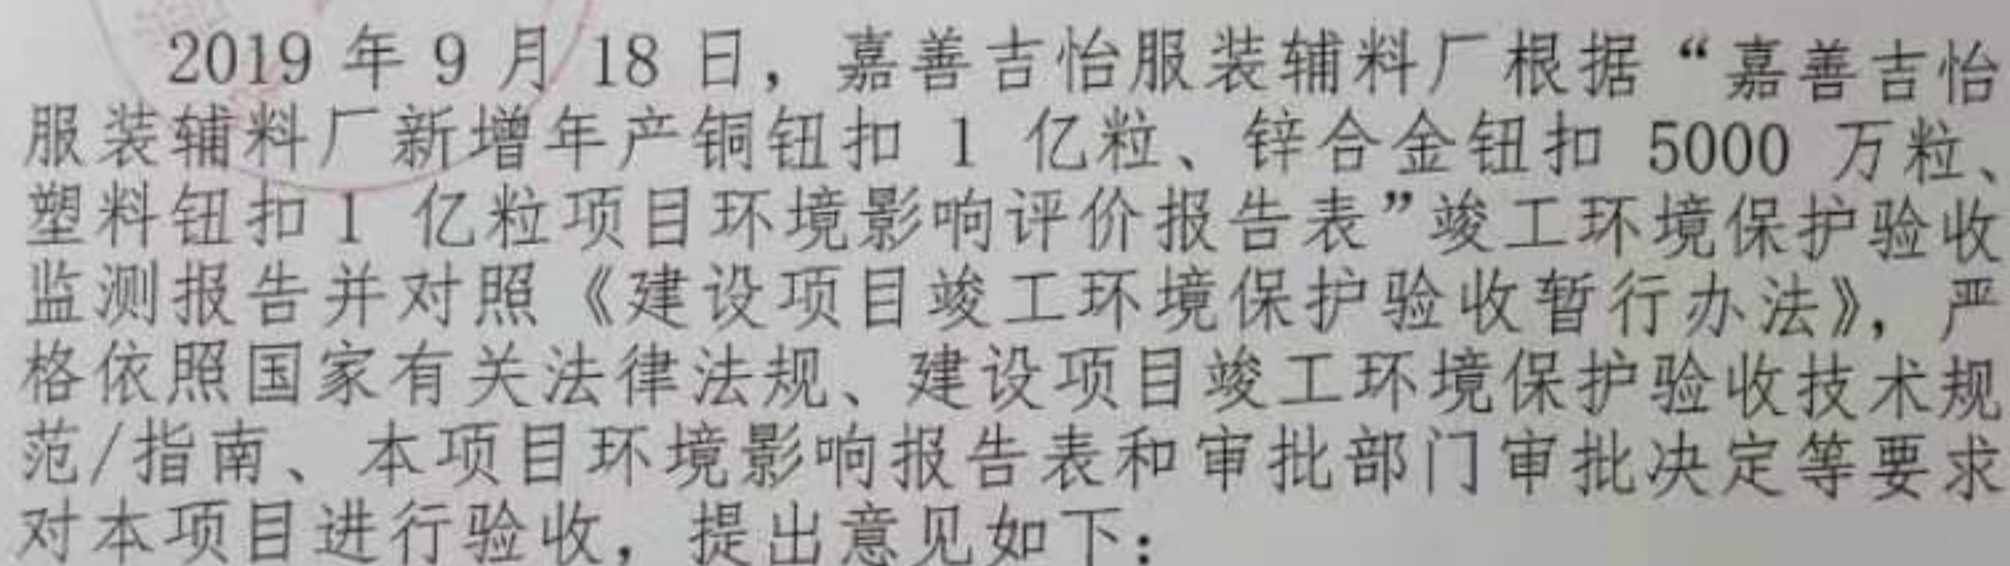 2019 年 9 月 18 日，嘉善吉怡服装辅料厂根据“嘉善吉怡
服装辅料厂新增年产铜钮扣 1 亿粒、锌合金钮扣 5000 万粒、
塑料钮扣 1 亿粒项目环境影响评价报告表”竣工环境保护验收
监测报告并对照《建设项目竣工环境保护验收暂行办法》，严
格依照国家有关法律法规、建设项目竣工环境保护验收技术规
范/指南、本项目环境影响报告表和审批部门审批决定等要求
对本项目进行验收，提出意见如下：